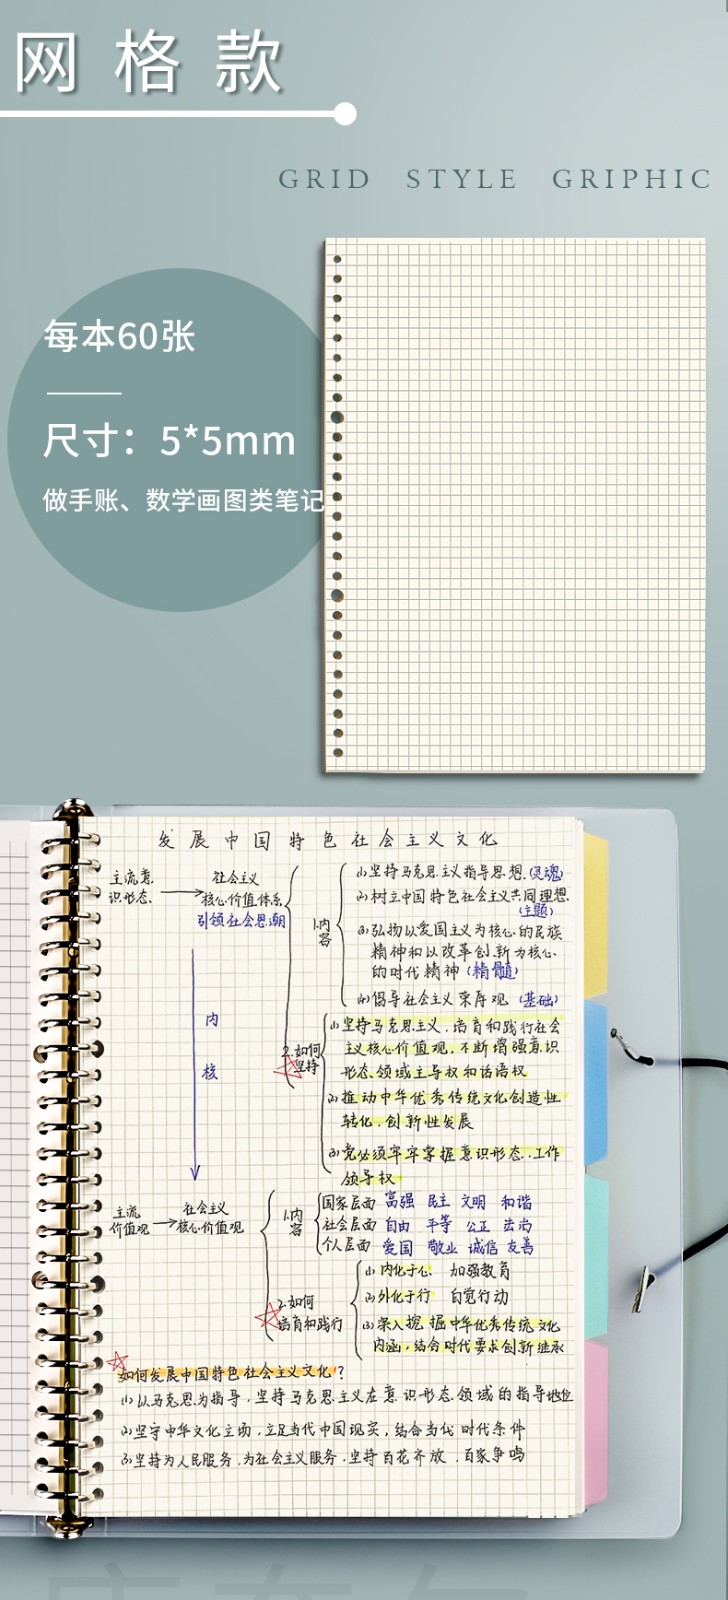 网格款
GRID STYLE GRIPHIC
每本60张
尺寸：5*5mm
做手账、数学画图类笔记
发展中国特色社会主义文化
主流意
识形态
社会主义
核心价值体系
引领社会思潮
内
核
1.内
容
(1)坚持马克思主义指导思想.(灵魂)
(2)树立中国特色社会主义共同理想.
(主题)
(3)弘扬以爱国主义为核心的民族
精神和以改革创新为核心
的时代精神(精髓)
(4)倡导社会主义荣辱观 (基础)
2.如何
坚持
(1)坚持马克思主义，培育和践行社会
主义核心价值观，不断增强意识
形态、领域主导权和话语权
(2)推动中华优秀传统文化创造性
转化，创新性发展
(3)党必须牢牢掌握意识形态、工作
领导权
主流
价值观
社会主义
核心价值观
1.内
容
国家层面 富强 民主 文明 和谐
社会层面 自由 平等 公正 法治
个人层面 爱国 敬业 诚信 友善
2.如何
培育和践行
(1) 内化于心 加强教育
(2)外化于行 自觉行动
(3)深入挖掘中华优秀传统文化
内涵，结合时代要求创新继承
如何发展中国特色社会主义文化？
(1)以马克思为指导，坚持马克思主义在意识形态领域的指导地位
(2)坚守中华文化立场，立足当代中国现实，结合当代时代条件
(3)坚持为人民服务，为社会主义服务，坚持百花齐放，百家争鸣